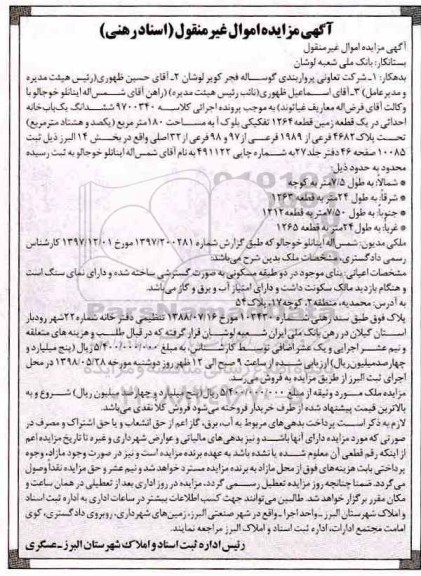 آگهی مزایده اموال غیر منقول (اسناد رهنی)
آگهی مزایده اموال غیرمنقول
بستانکار: بانک ملی شعبه لوشان
بدهکار: ۱ـ شرکت تعاونی پرواربندی گوساله فجر کویر لوشان ۲ـ آقای حسین ظهوری(رئیس هیئت مدیره
و مدیرعامل) ۳ـ آقای اسماعیل ظهوری(نائب رئیس هیئت مدیره) (راهن آقای شمس‌اله اینانلو خوجالو با
وکالت آقای فرض‌اله معاریف غیاثوند) به موجب پرونده اجرائی کلاسه ۹۷۰۰۳۴۰ ششدانگ یک‌باب‌خانه
احداثی در یک قطعه زمین قطعه ۱۲۶۴ تفکیکی بلوک آ به مساحت ۱۸۰ متر مربع (یکصد و هشتاد مترمربع)
تحت پلاک ۴۶۸۲ فرعی از ۱۹۸۹ فرعی از ۹۷ و ۹۸ فرعی از ۳۲ اصلی واقع در بخش ۱۴ البرز ذیل ثبت
۱۰۰۸۵ صفحه ۴۶ دفتر جلد ۲۷ به شماره چاپی ۴۹۱۱۲۲ به نام آقای شمس‌اله اینانلو خوجالو به ثبت رسیده
محدود به حدود ذیل:
* شمالاً: به طول ۷/۵متر به کوچه
* شرقاً: به طول ۲۴متر به قطعه ۱۲۶۳
* جنوباً: به طول ۷/۵۰متر به قطعه ۱۲۱۲
* غرباً: به طول ۲۴متر به قطعه ۱۲۶۵
ملکی مدیون: شمس‌اله اینانلو خوجالو که طبق گزارش شماره ۱۳۹۷/۲۰۰۲۸۱ مورخ ۱۳۹۷/۱۲/۰۱ کارشناس
رسمی دادگستری، مشخصات ملک بدین شرح می‌باشد:
مشخصات اعیانی: بنای موجود در دو طبقه مسکونی به صورت گسترشی ساخته شده و دارای نمای سنگ است
و هنگام بازدید مالک سکونت داشت و دارای امتیاز آب و برق و گاز می‌باشد.
به آدرس: محمدیه، منطقه ۲، کوچه ۱۷، پلاک ۵۴
پلاک فوق طبق سند رهنی شماره ۱۰۳۴۳۰ مورخ ۱۳۸۸/۰۷/۱۶ تنظیمی دفترخانه شماره ۲۲ شهر رودبار
استان گیلان در رهن بانک ملی ایران شعبه لوشان قرار گرفته که در قبال طلب و هزینه های متعلقه
و نیم عشر اجرایی و یک عشر اضافی توسط کارشناس، به مبلغ ۵/۴۰۰/۰۰۰/۰۰۰ ریال (پنج میلیارد و
چهارصدمیلیون‌ریال) ارزیابی شد، از ساعت ۹ صبح الی ۱۲ ظهر روز دوشنبه مورخه ۱۳۹۸/۰۵/۲۸ در محل
اجرای ثبت البرز از طریق مزایده به فروش می‌رسد.
مزایده ملک مورد وثیقه از مبلغ ۵/۴۰۰/۰۰۰/۰۰۰ ریال (پنج میلیارد و چهارصد میلیون ریال) شروع و به
بالاترین قیمت پیشنهاد شده از طرف خریدار فروخته می‌شود فروش کلاً نقدی می‌باشد.
لازم به ذکر است پرداخت بدهی‌های مربوط به آب، برق، گاز اعم از حق انشعاب و یا حق اشتراک و مصرف در
صورتی که مورد مزایده دارای آنها باشد و نیز بدهی‌های مالیاتی و عوارض شهرداری و غیره تا تاریخ مزایده اعم
از اینکه رقم قطعی آن معلوم شده یا نشده باشد به عهده برنده مزایده است و نیز در صورت وجود مازاد، وجوه
پرداختی بابت هزینه‌های فوق از محل مازاد به برنده مزایده مسترد خواهد شد و نیم عشر و حق مزایده نقداً وصول
می‌گردد. ضمناً چنانچه روز مزایده تعطیل رسمی گردد، مزایده در روز اداری بعد از تعطیلی در همان ساعت و
مکان مقرر برگزار خواهد شد. طالبین می‌توانند جهت کسب اطلاعات بیشتر در ساعات اداری به اداره ثبت اسناد
و املاک شهرستان البرز ـ واحد اجرا ـ واقع در شهر صنعتی البرز، زمین‌های شهرداری، روبروی دادگستری، کوی
امامت مجتمع ادارات، اداره ثبت اسناد و املاک البرز مراجعه نمایند.
رئیس اداره ثبت اسناد و املاک شهرستان البرز ـ عسگری